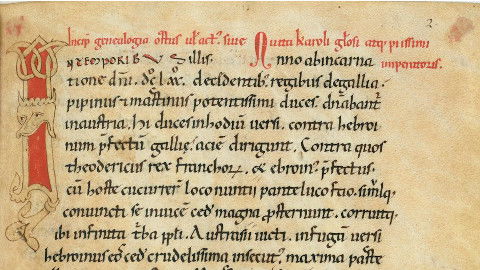 Incip genealogia ortus ul act; siue Vita karoli głosi atq; piissimi
imperatoris.
illis. Anno abincarna
tione dñi. dc̄ lxx. decedentib; regibus degallia.
pipinus & martinus potentissimi duces. dñabant̃
inaustria. hi ducesinhodiũ uersi. contra hebroi
num p̃fectũ gallię. aciẽ dirigunt. Contra quos
theodericus rex franchoꝝ. & ebroin; p̃fectus.
cũ hoste cucurrer̃ loco nuntupante lucofao. simłq;
conuncti se inuicẽ ced magna p̃sternunt. corruitq;
ibi infinita t̃ba ppli. Austrasii uicti. infugã uersi
hebroinus eos̃ ced crudelissima insecut; maxima parte